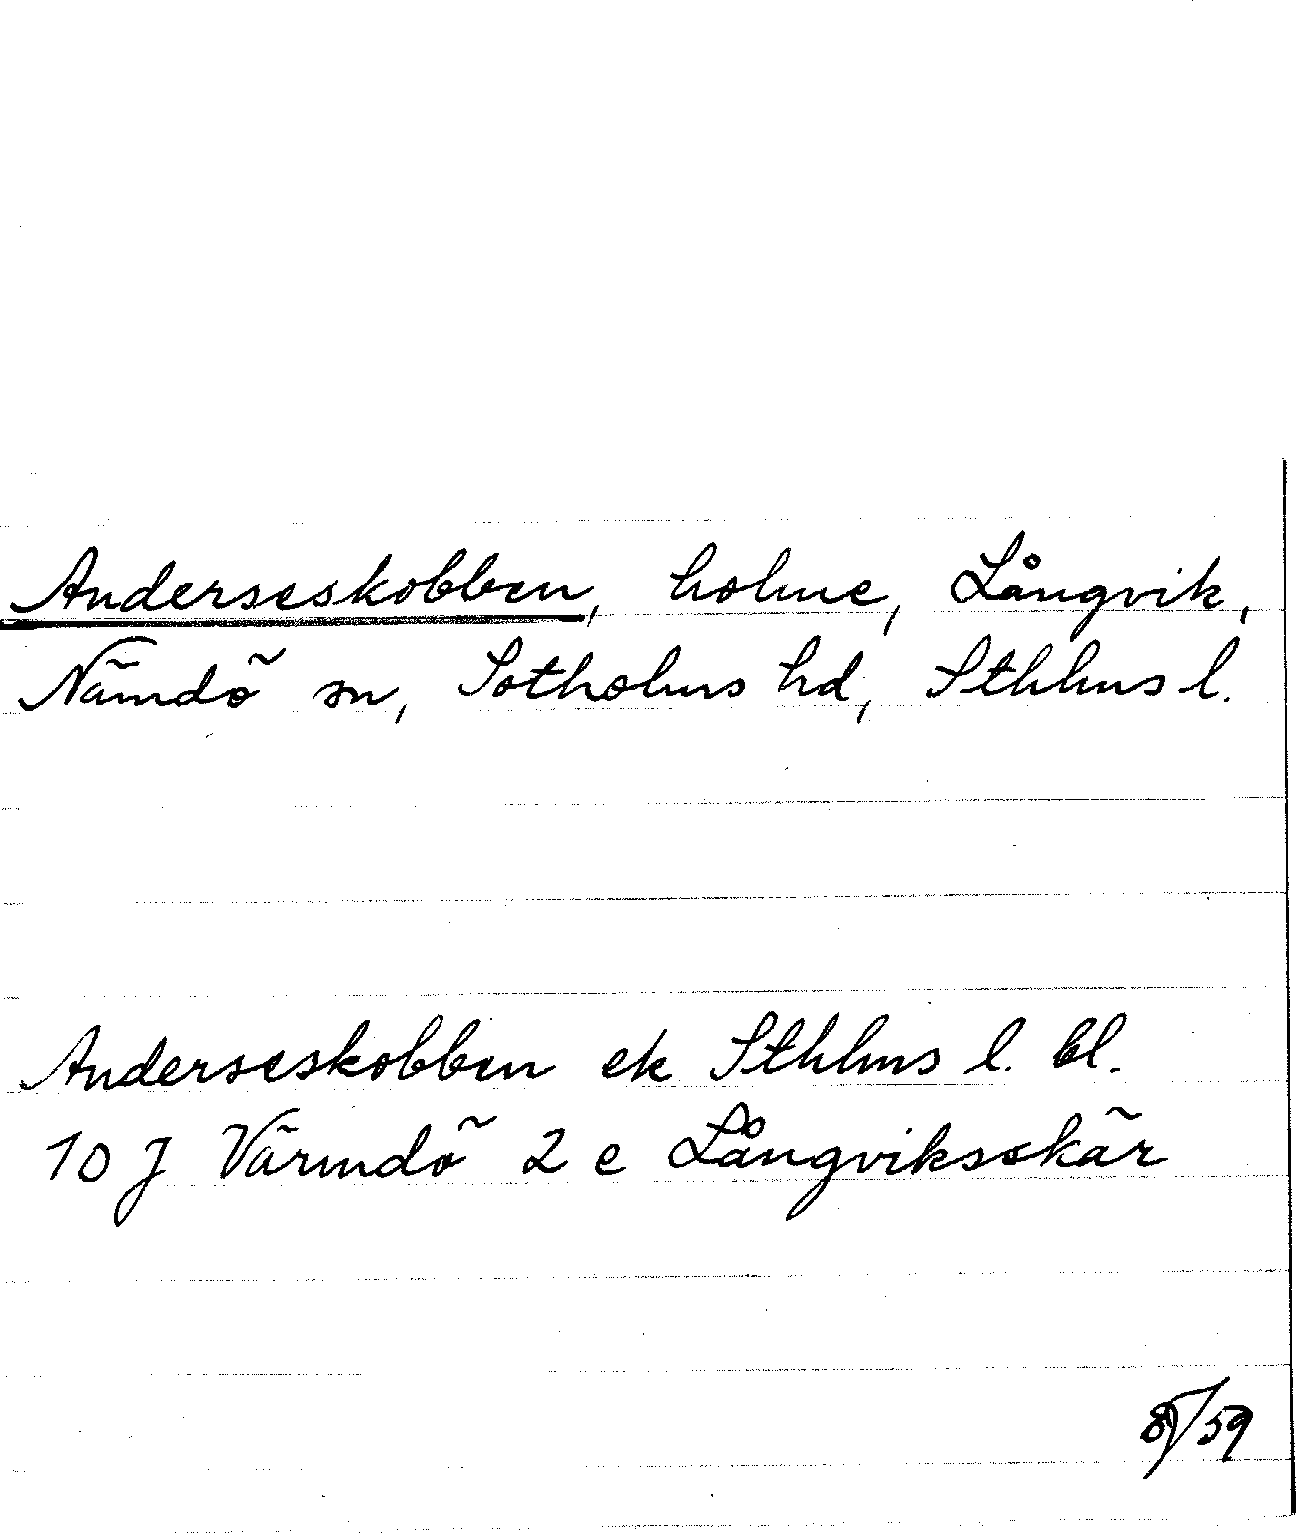 Anderseskobben, holme, Långvik,
Nämdö sn, Sotholms hd, Sthlms l.
Anderseskobben ek Sthlms l. bl.
10 J Värmdö 2 e Långviksskär
/59